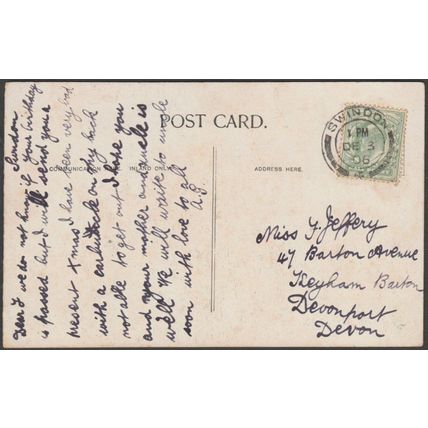 POST CARD.
COMMUNICATION INLAND ONLY
ADDRESS HERE.
SWINDON
1 PM
DE 3
06
Swindon
Dear we do not know if your birthday
is passed but I will send you a
present Xmas I have been very bad
with a carbuncle on my back
not able to get out I hope you
and your mother and uncle is
well We will write to uncle
soon with love to all
A.J.
Miss Y. Jeffery
47 Barton Avenue
Keyham Barton
Devonport
Devon